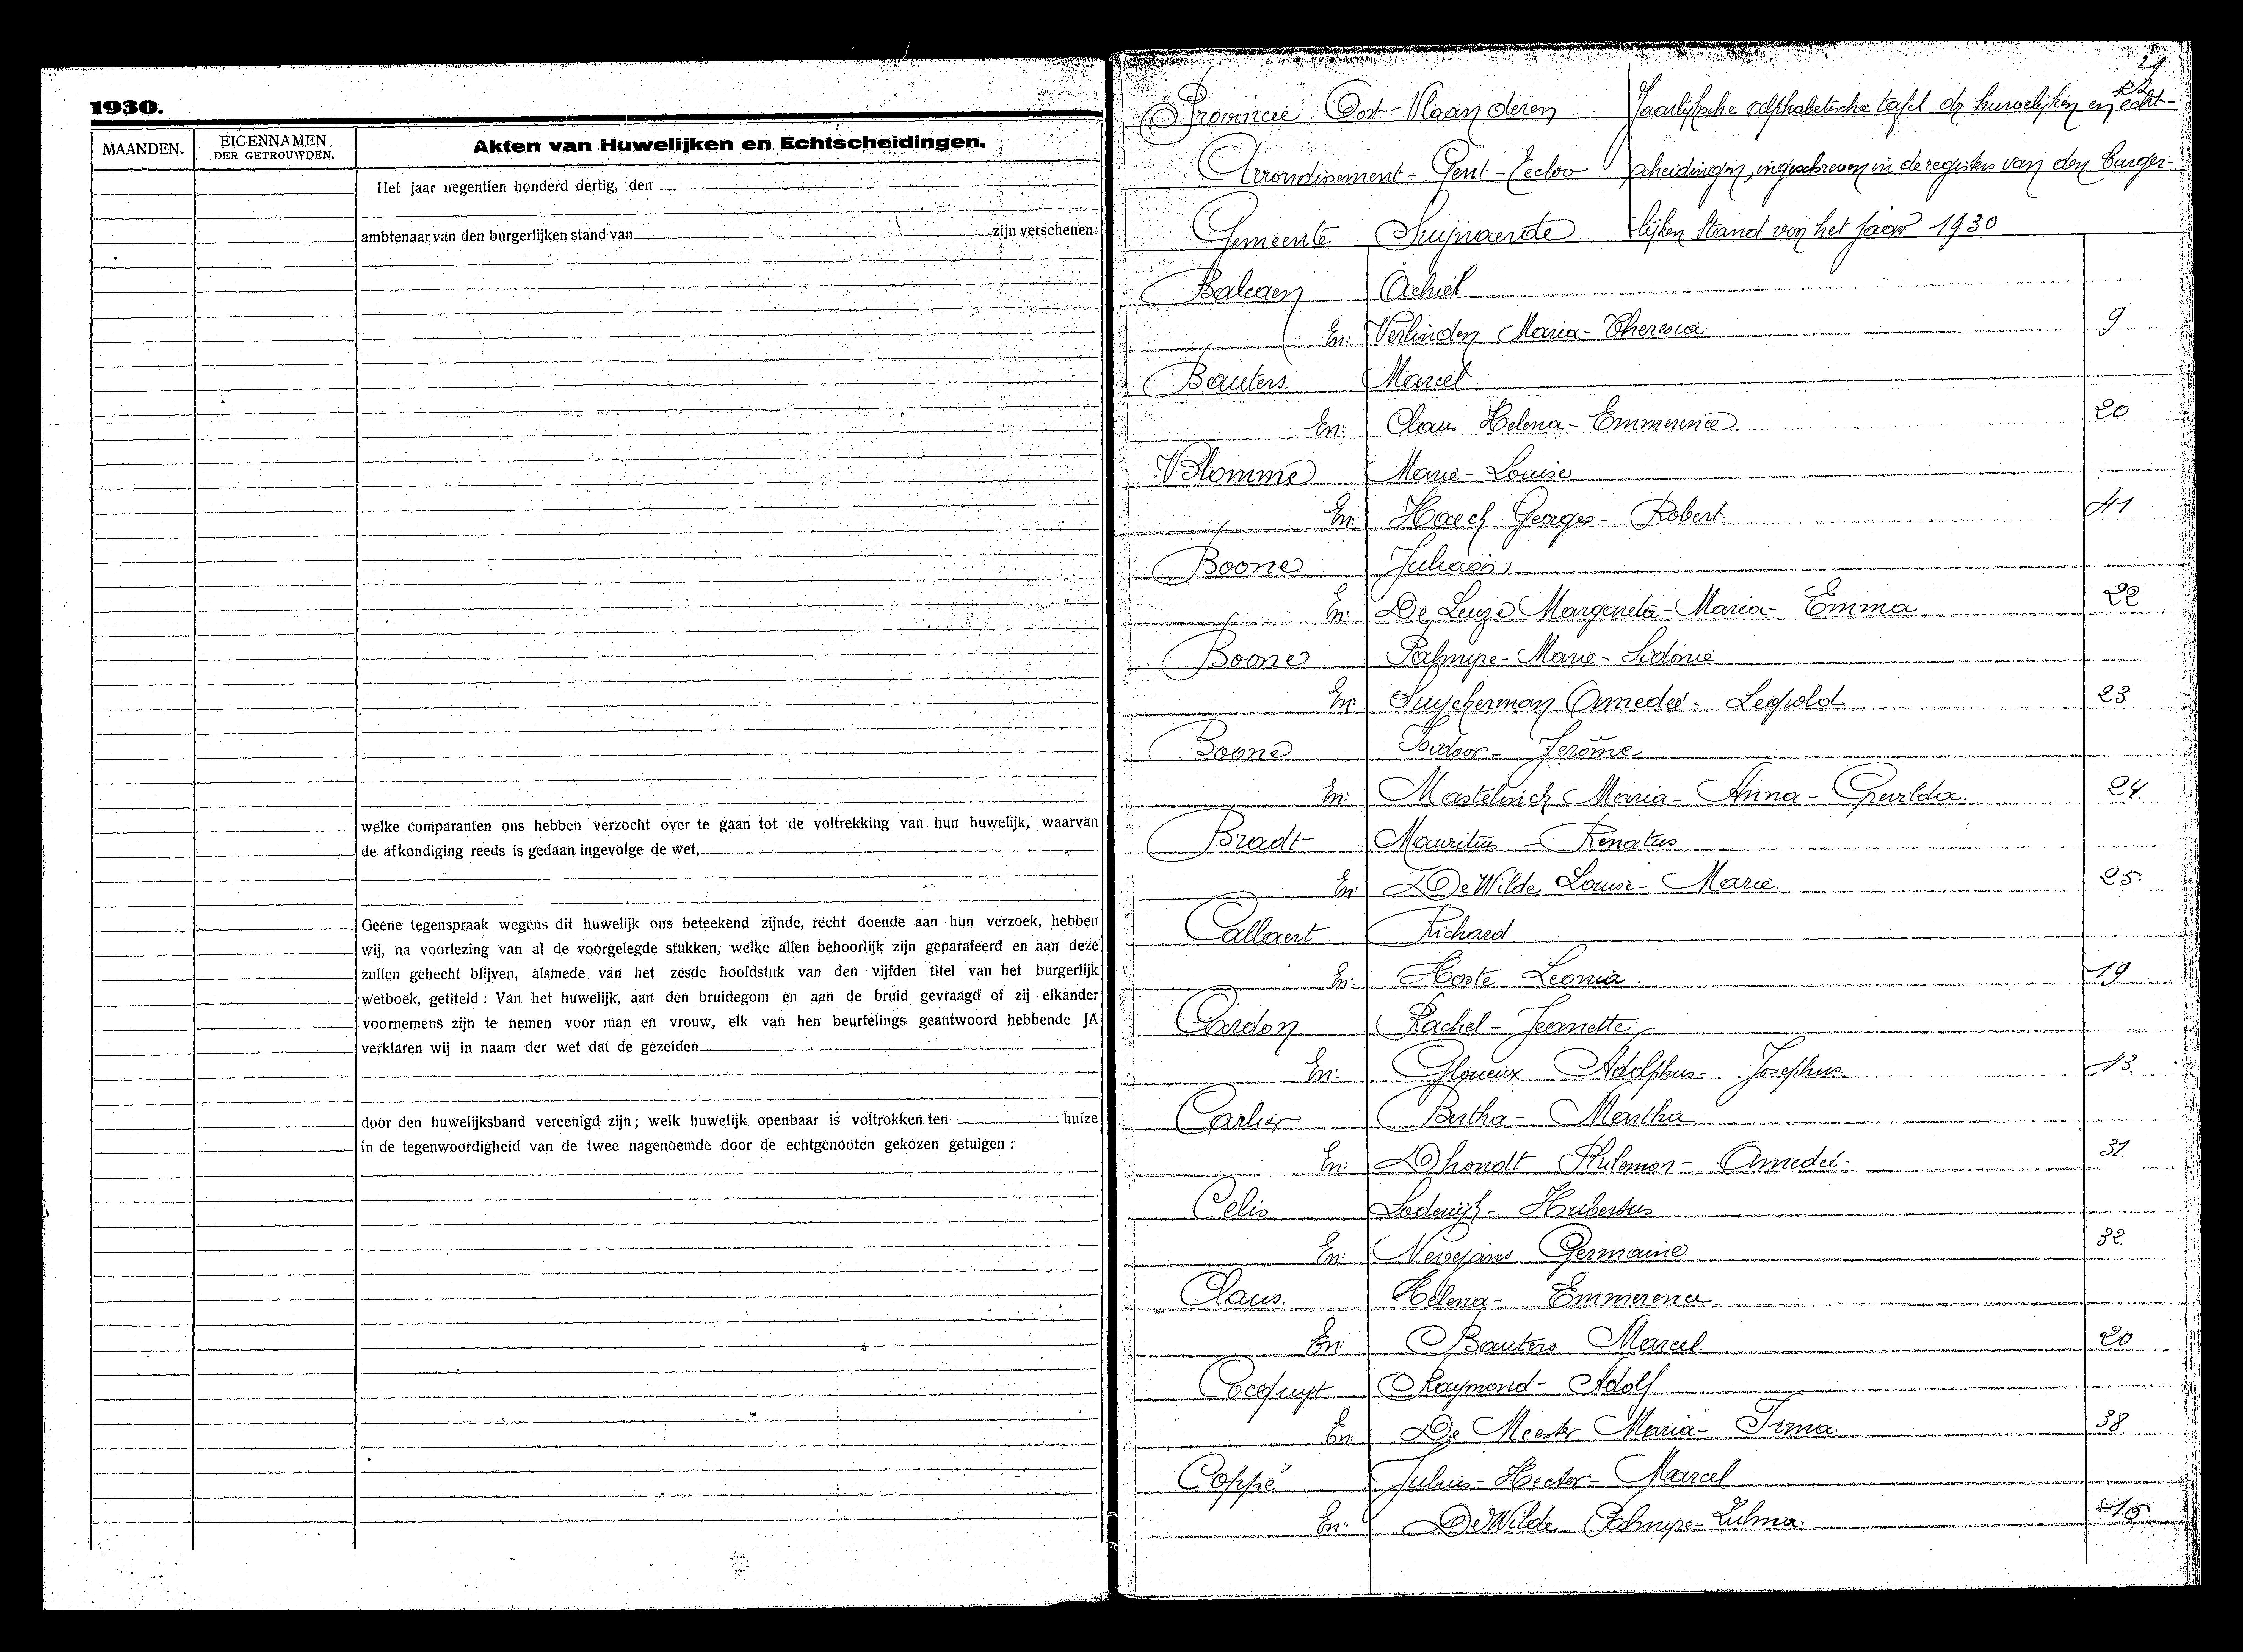 1930.
MAANDEN.
EIGENNAMEN
DER GETROUWDEN.
Akten van Huwelijken en Echtscheidingen.
Het jaar negentien honderd dertig, den
ambtenaar van den burgerlijken stand van zijn verschenen:
welke comparanten ons hebben verzocht over te gaan tot de voltrekking van hun huwelijk, waarvan
de afkondiging reeds is gedaan ingevolge de wet,
Geene tegenspraak wegens dit huwelijk ons beteekend zijnde, recht doende aan hun verzoek, hebben
wij, na voorlezing van al de voorgelegde stukken, welke allen behoorlijk zijn geparafeerd en aan deze
zullen gehecht blijven, alsmede van het zesde hoofdstuk van den vijfden titel van het burgerlijk
wetboek, getiteld : Van het huwelijk, aan den bruidegom en aan de bruid gevraagd of zij elkander
voornemens zijn te nemen voor man en vrouw, elk van hen beurtelings geantwoord hebbende JA
verklaren wij in naam der wet dat de gezeiden
door den huwelijksband vereenigd zijn; welk huwelijk openbaar is voltrokken ten huize
in de tegenwoordigheid van de twee nagenoemde door de echtgenooten gekozen getuigen :
Provincie Oost-Vlaanderen
Jaarlijksche alphabetische tafel der huwelijken en echt-
Arrondissement - Gent - Eecloo
scheidingen, ingeschreven in de registers van den burger-
Gemeente Swijnaerde
lijken Stand van het jaar 1930
Balcaen Achiel
En: Verlinden Maria-Theresia 9
Bauters Marcel
En: Claus Helena-Emmerence 20
Blomme Marie-Louise
En: Haeck Georges-Robert 41
Boone Juliaan
En: De Leuze Margareta-Maria-Emma 22
Boone Palmyre-Marie-Sidonie
En: Suyckerman Amedeé-Leopold 23
Boone Isidoor-Jerôme
En: Mastelinck Maria-Anna-Gravilda 24.
Bradt Mauritius-Renatus
En: De Wilde Louise-Marie. 25
Callaert Richard
En: Hoste Leonia. 19
Cardon Rachel-Jeanette
En: Glorieux Adolphus-Josephus 13.
Carlier Bertha-Martha
En: Dhondt Philemon-Amedeé. 31
Celis Lodewijk-Hubertus
En: Neirejans Germaine 32.
Claus. Helena-Emmerence
En: Bauters Marcel. 20
Cocquyt Raymond-Adolf
En: De Meester Maria-Irma. 38.
Coppé Julius-Hector-Marcel
En: De Wilde Palmyre-Zulma.